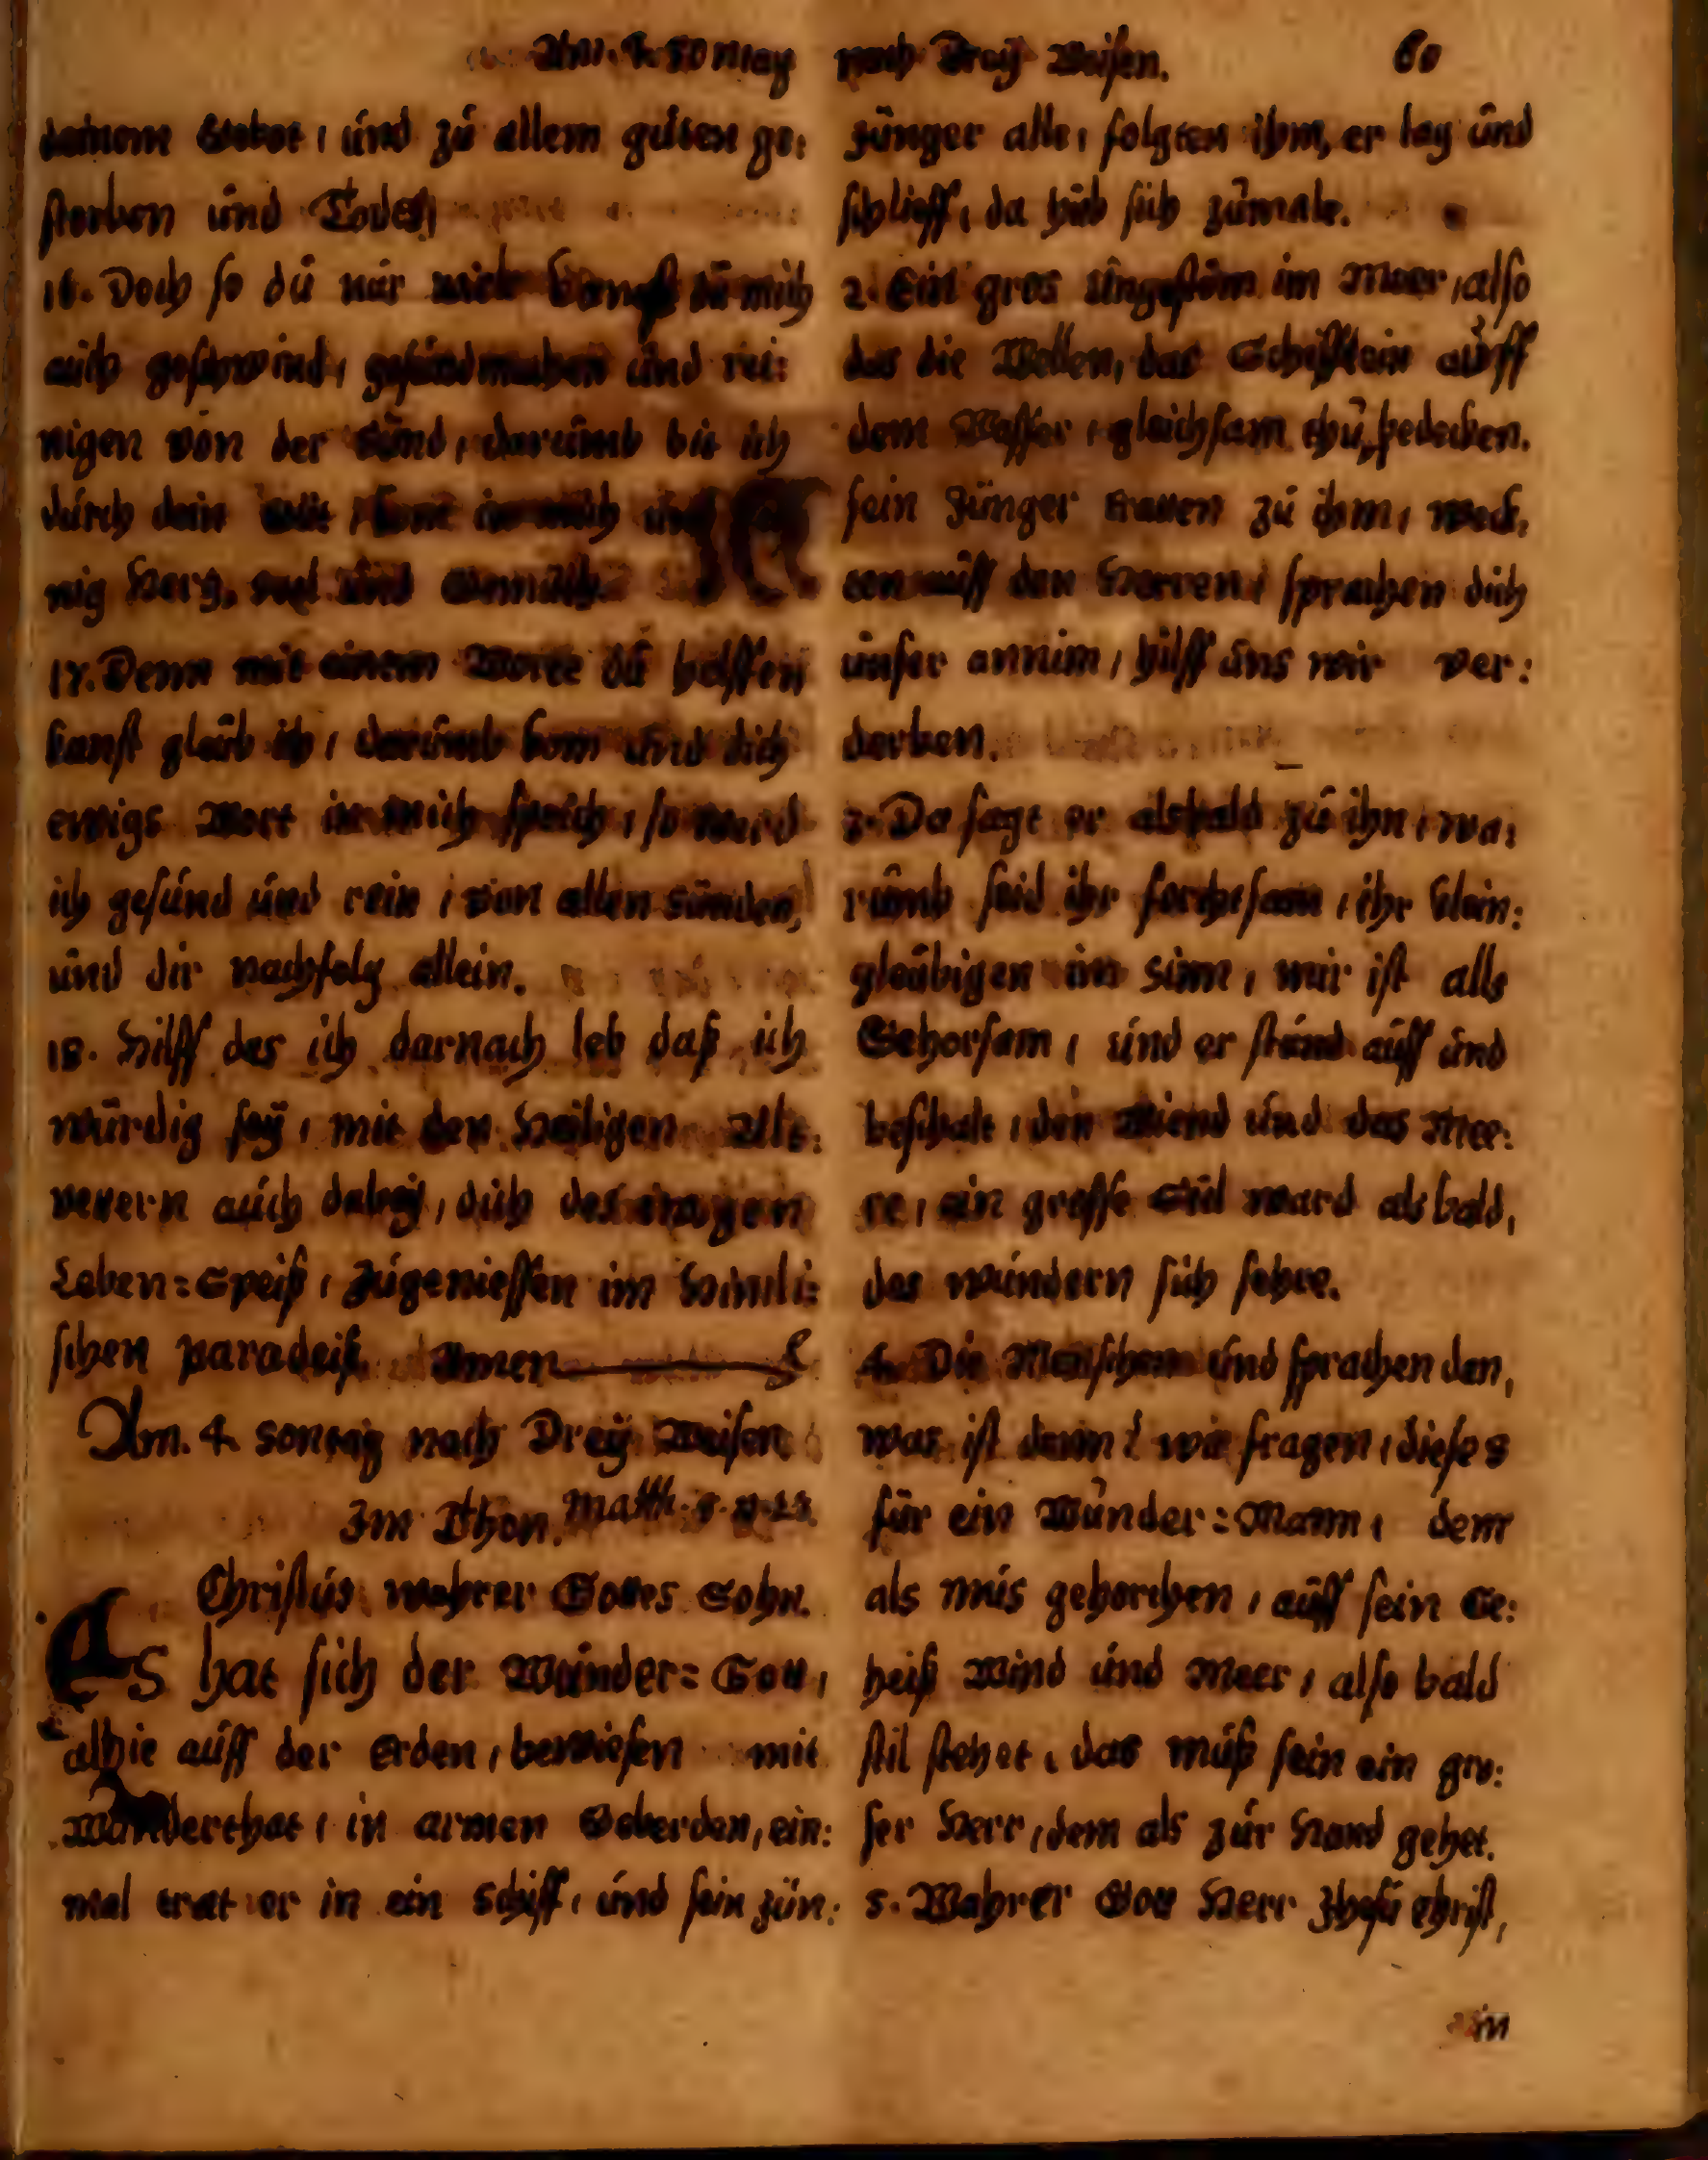 Am. 4. Sontag nach Dreÿ Weisen. 60
deinem Gebot, und zu allem guten ge:
storben und Todt,
16. Doch so du nur wilt kanst du mich
auch geschwind, gesund machen und rei:
nigen von der Sünd, darumb bit ich
durch dein
nig Hertz, und Gemüth.
17. Denn mit einem Worte du helffen
kanst glaub ich, darumb kom und dich
ewigs Wort in mich sprich, so werd
ich gesund und rein, von allen Sünden,
und dir nachfolg allein.
18. Hilff das ich darnach leb daß ich
würdig seÿ, mit den Heiligen Alt:
vetern auch dabeÿ, dich des ewigen
Leben=Speiß, zugeniessen im Himli:
schen paradeiß. Amen
Am. 4 Sontag nach Dreÿ Weisen
Im Thon. Matth. 8.
Christus wahrer Gottes Sohn.
Es hat sich der Wunder=Gott,
alhie auff der Erden, bewiesen mit
Wunderthat, in armen Geberden, ein:
mal trat er in ein Schiff, und sein Jün:
Jünger alle, folgten ihm, er lag und
schlieff, da hub sich zumale.
2. Ein gros ungestöm im Meer, also
das die Wellen, das Schifflein auff
dem Wasser, gleichsam thu bedecken.
sein Jünger traten zu ihm, weck,
ten auff den Herren, sprachen dich
unser annim, hilff uns wir ver:
derben.
3. Da sagt er alsbald zu ihn, wa,
rumb seid ihr forchtsam, ihr klein:
gleubigen im Sinn, mir ist alls
Gehorsam, und er stund auff und
beschalt, den Wiend und das Mee:
re, ein grosse Stil ward als bald,
des wundern sich sehre.
4. Die Menschen und sprachen den,
was ist denn? wir fragen, dieses
für ein Wunder=Mann, dem
als mus gehorchen, auff sein Ge:
heiß Wind und Meer, also bald
stil stehet, das muß sein ein gro:
ser Herr, dem als zur Hand gehet.
5. Wahrer Gott Herr Jhesu Christ,
in